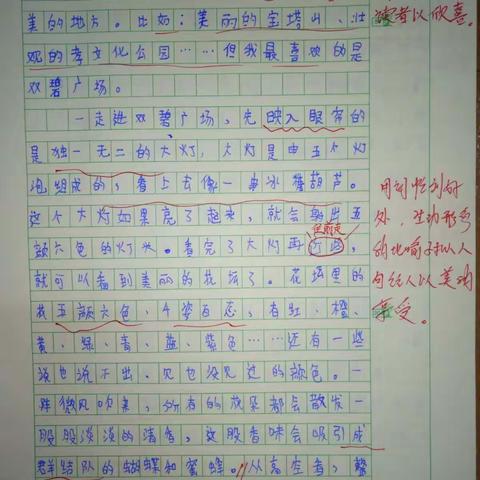 美的地方。比如：美丽的宝塔山、壮
观的孝文化公园……但我最喜欢的是
双碧广场。
一走进双碧广场，先映入眼帘的
是独一无二的大灯，大灯是由五个灯
泡组成的，看上去像一串冰糖葫芦。
这个大灯如果亮了起来，就会射出五
颜六色的灯光。看完了大灯再
往前走
就可以看到美丽的花坛了。花坛里的
花五颜六色、千姿百态，有红、橙、
黄、绿、青、蓝、紫色……还有一些
说也说不出、见也没见过的颜色。一
阵微风吹来，所有的花朵都会散发一
股股淡淡的清香，这股香味会吸引成
群结队的蝴蝶和蜜蜂。从高空看，整
读者以欣喜。
用词恰到好
处，生动形象
的比喻子拟人
句给人以美的
享受。